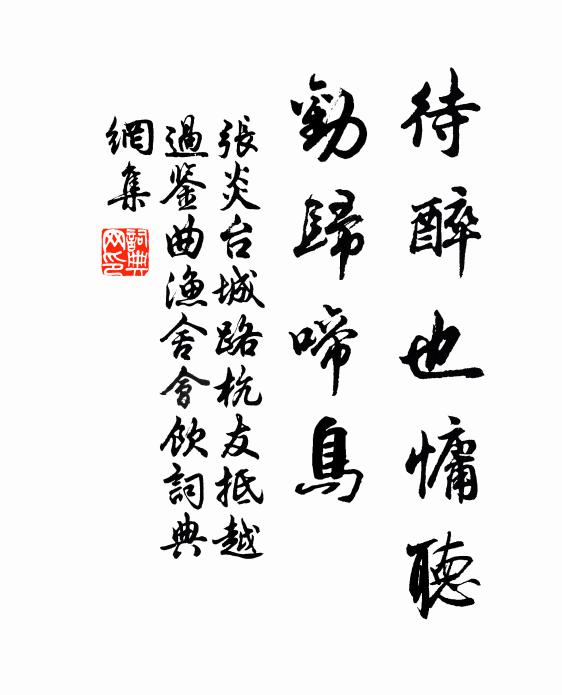 待醉也慵聽
勸歸啼鳥
張炎台城路杭友抵越
過鉴曲漁舍會飲詞典
網集
詞典
网印